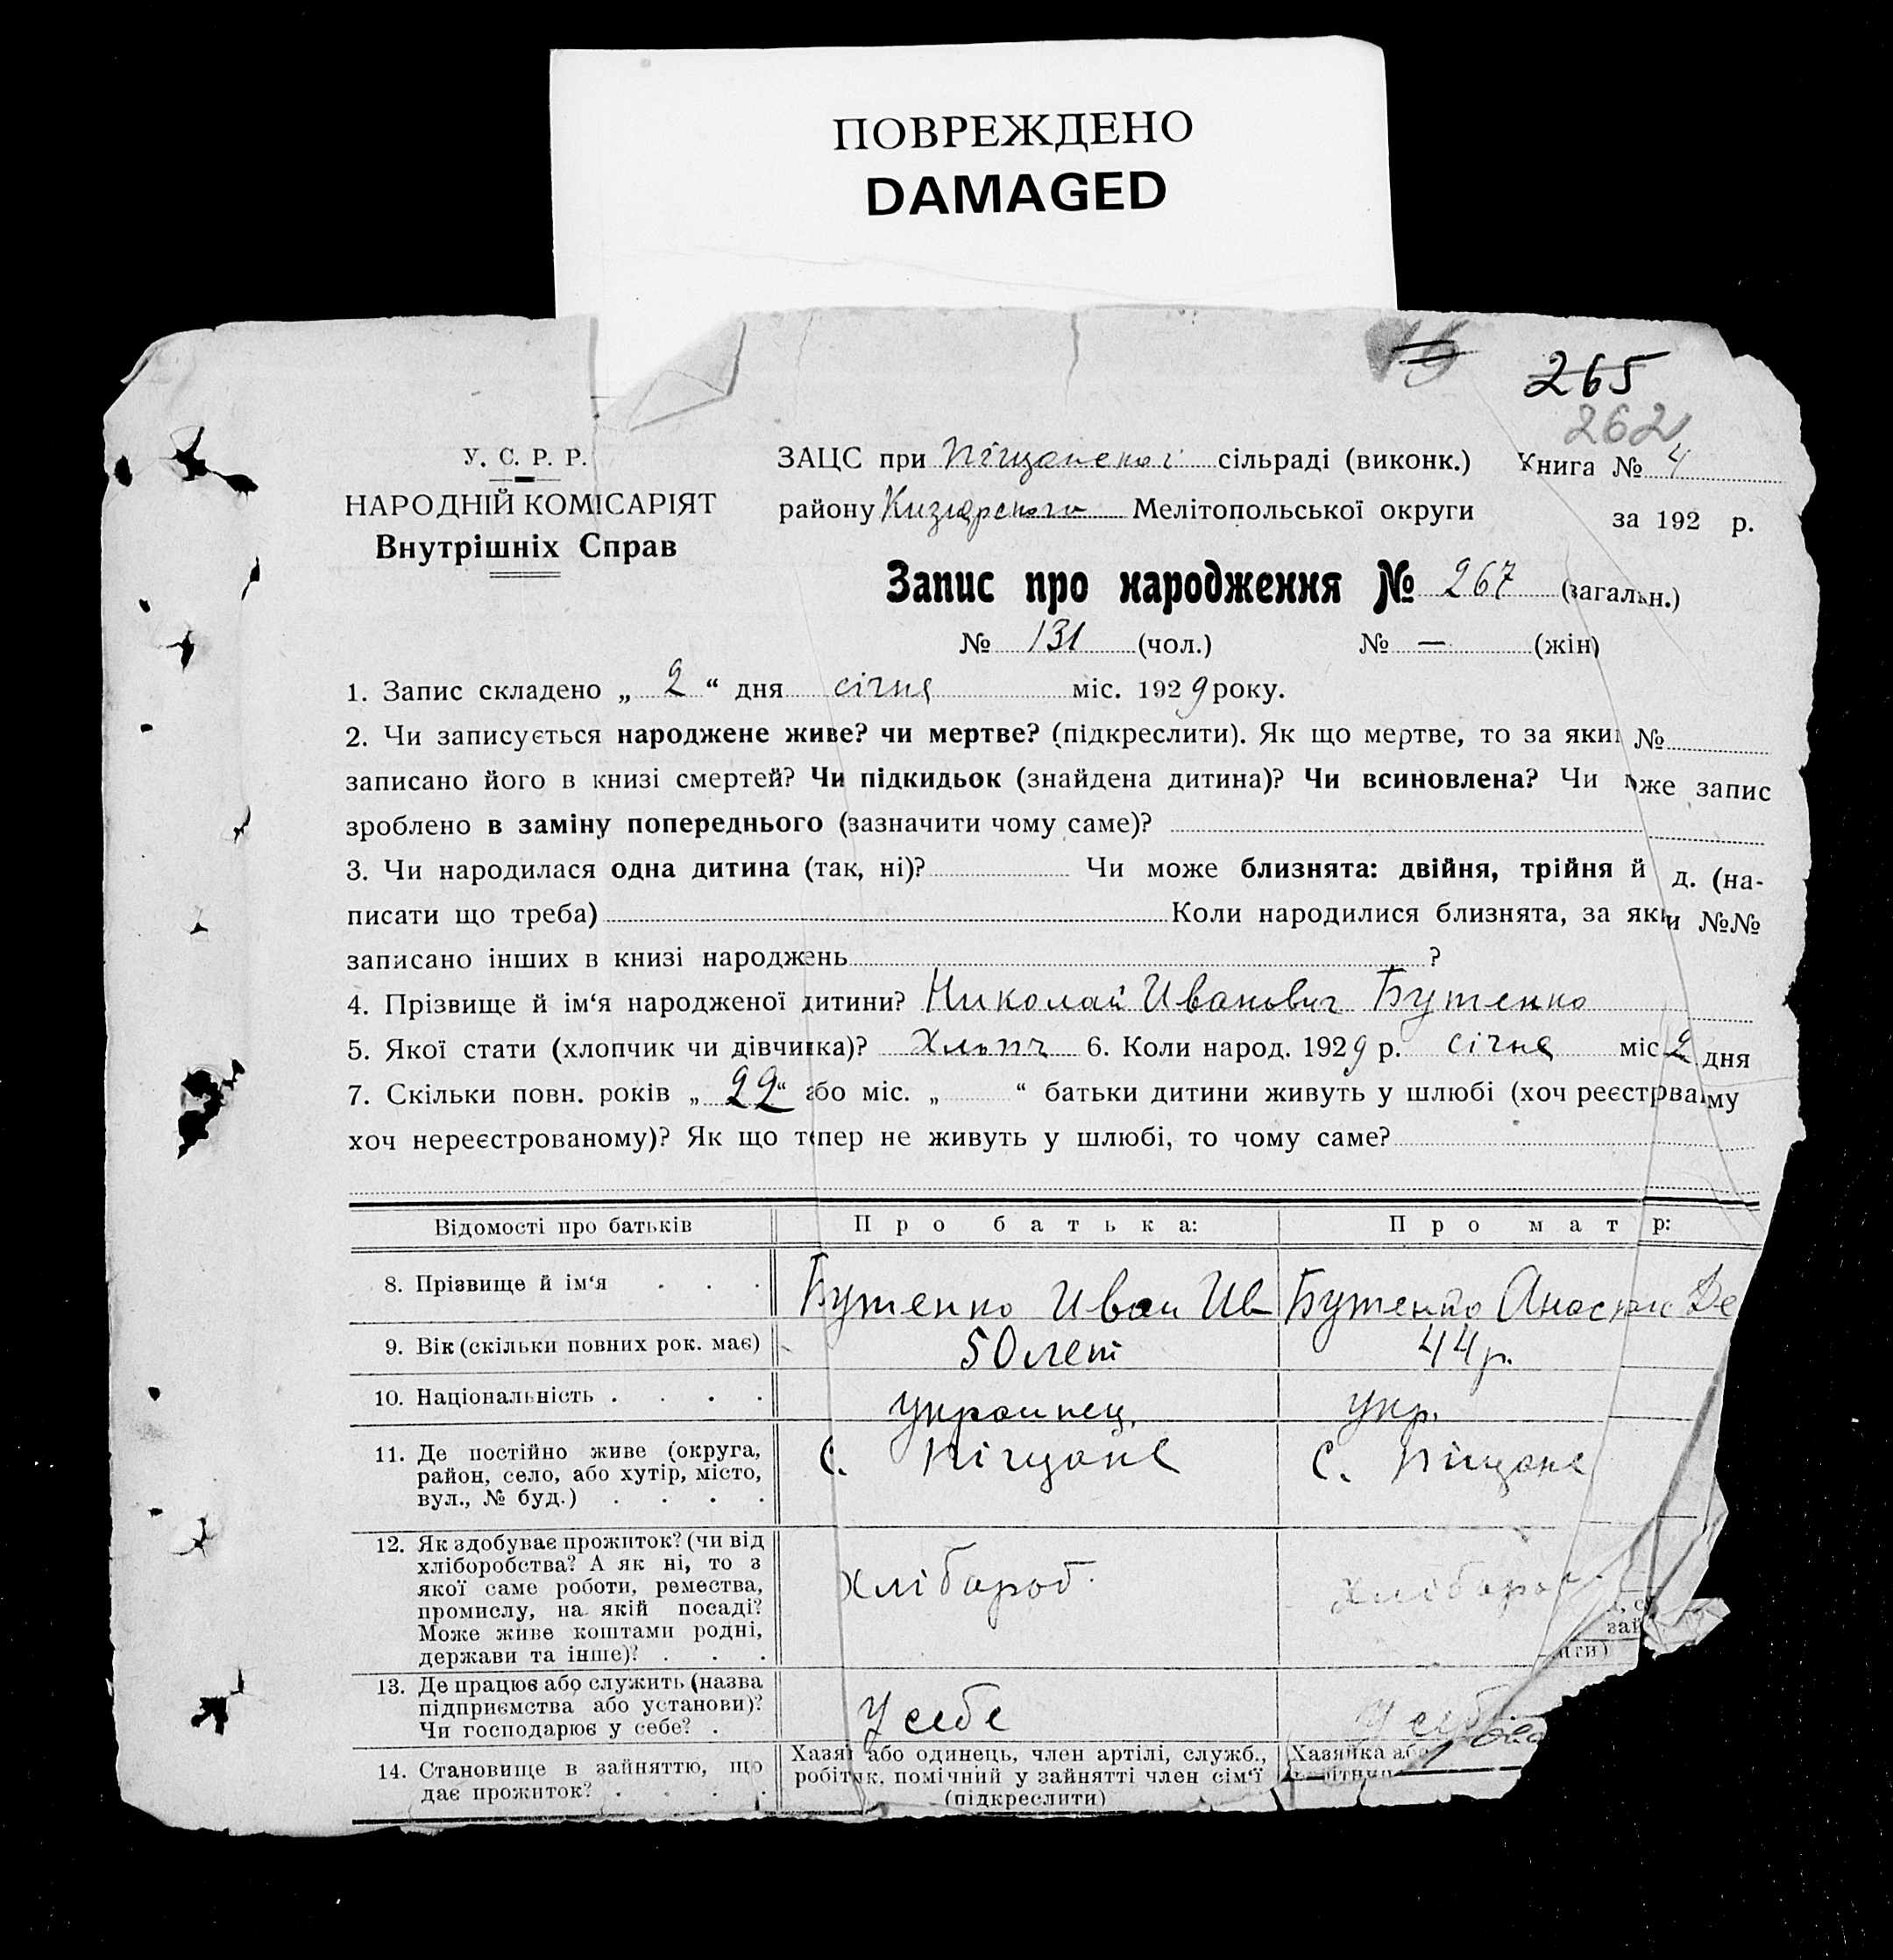 ПОВРЕЖДЕНО
DAMAGED
265
262
У. С. Р. Р.
НАРОДНІЙ КОМІСАРІЯТ
Внутрішніх Справ
ЗАЦС при Піщанської сільраді (виконк.) Книга № 4
району Кизіярского Мелітопольської округи за 192 р.
Запис про народження № 267 (загальн.)
№ 131 (чол.) № — (жін)
1. Запис складено „ 2 “ дня січня міс. 1929 року.
2. Чи записується народжене живе? чи мертве? (підкреслити). Як що мертве, то за яким №
записано його в книзі смертей? Чи підкидьок (знайдена дитина)? Чи всиновлена? Чи може запис
зроблено в заміну попереднього (зазначити чому саме)?
3. Чи народилася одна дитина (так, ні)? Чи може близнята: двійня, трійня й д. (на-
писати що треба) Коли народилися близнята, за яки №№
записано інших в книзі народжень ?
4. Прізвище й ім‘я народженої дитини? Николай Иванович Бутенко
5. Якої стати (хлопчик чи дівчинка)? Хлопч 6. Коли народ. 1929 р. січня міс 2 дня
7. Скільки повн. років „ 22 “ або міс. „ “ батьки дитини живуть у шлюбі (хоч реєстрваму
хоч нереєстрованому)? Як що тепер не живуть у шлюбі, то чому саме?
Відомості про батьків Про батька: Про матр:
8. Прізвище й ім‘я . . . Бутенко Иван Ив Бутенко Анастас Де
9. Вік (скільки повних рок. має) 50 лет 44 р.
10. Національність . . . . украинец. укр.
11. Де постійно живе (округа,
район, село, або хутір, місто,
вул., № буд.) . . . .
с. Піщане с. Піщане
12. Як здобуває прожиток? (чи від
хліборобства? А як ні, то з
якої саме роботи, ремества,
промислу, на якій посаді?
Може живе коштами родні,
держави та інше)? . . .
хлібороб. хлібороб
13. Де працює або служить (назва
підприємства або установи)?
Чи господарює у себе? .
У себе У себе
14. Становище в зайняттю, що
дає прожиток? . . . .
Хазяї або одинець, член артілі, служб.,
робітник, помічний у зайнятті член сім‘ї
(підкреслити)
Хазяйка або